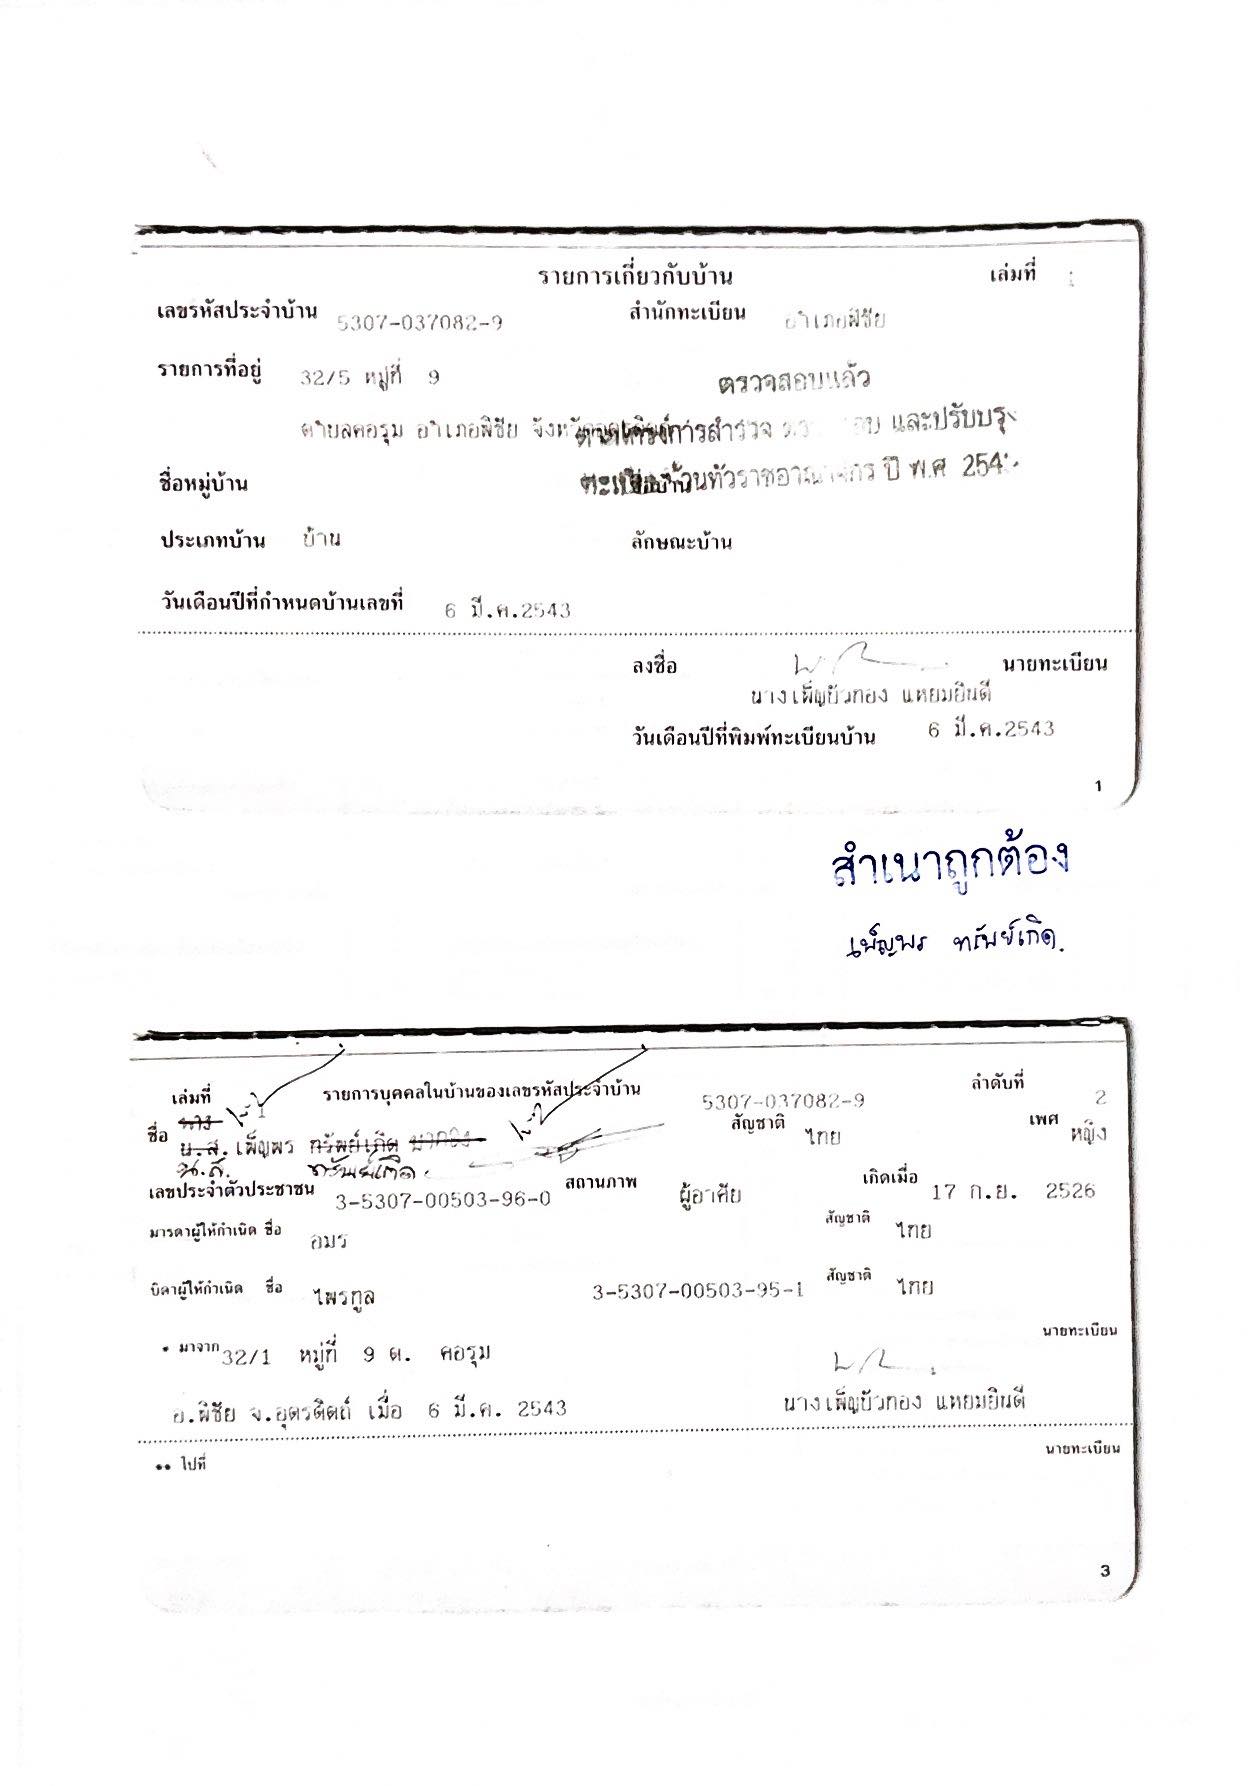 รายการเกี่ยวกับบ้าน เล่มที่ 1
เลขรหัสประจำบ้าน 5307-037082-9 สำนักทะเบียน อำเภอพิชัย
รายการที่อยู่ 32/5 หมู่ที่ 9 ตรวจสอบแล้ว
ตำบลคอรุม อำเภอพิชัย โครงการสำรวจ และปรับปรุง
ชื่อหมู่บ้าน ชื่อบ้าน ทั่วราชอาณาจักร ปี พ.ศ
ประเภทบ้าน บ้าน ลักษณะบ้าน
วันเดือนปีที่กำหนดบ้านเลขที่ 6 มี.ค.2543
ลงชื่อ นายทะเบียน
นางเพ็ญบัวทอง แหยมยินดี
วันเดือนปีที่พิมพ์ทะเบียนบ้าน 6 มี.ค.2543
1
สำเนาถูกต้อง
เพ็ญพร ทรัพย์เกิด.
เล่มที่ 1 รายการบุคคลในบ้านของเลขรหัสประจำบ้าน 5307-037082-9 ลำดับที่ 2
นาง
ชื่อ น.ส.เพ็ญพร ทรัพย์เกิด สัญชาติ ไทย เพศ หญิง
น.ส. ทรัพย์เกิด.
เลขประจำตัวประชาชน 3-5307-00503-96-0 สถานภาพ ผู้อาศัย เกิดเมื่อ 17 ก.ย. 2526
มารดาผู้ให้กำเนิด ชื่อ อมร สัญชาติ ไทย
บิดาผู้ให้กำเนิด ชื่อ ไพรทูล 3-5307-00503-95-1 สัญชาติ ไทย
* มาจาก 32/1 หมู่ที่ 9 ต. คอรุม นายทะเบียน
อ.พิชัย จ.อุตรดิตถ์ เมื่อ 6 มี.ค. 2543 นางเพ็ญบัวทอง แหยมยินดี
** ไปที่ นายทะเบียน
3